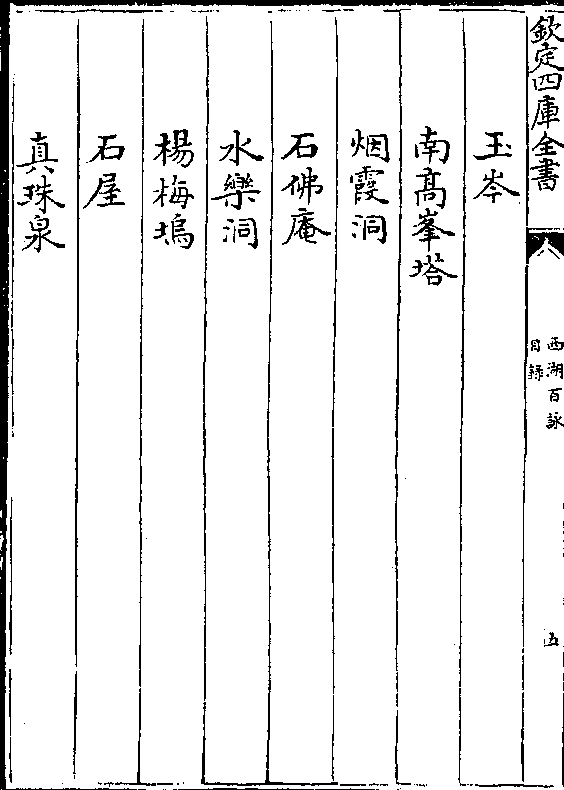 欽定四庫全書
西湖百詠
目錄
五
玉岑
南髙峯塔
烟霞洞
石佛庵
水樂洞
楊梅塢
石屋
真珠泉